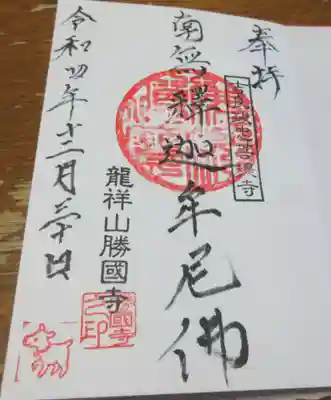 奉拝
南無釋迦牟尼佛
龍祥山勝國寺
令和四年十二月三十日